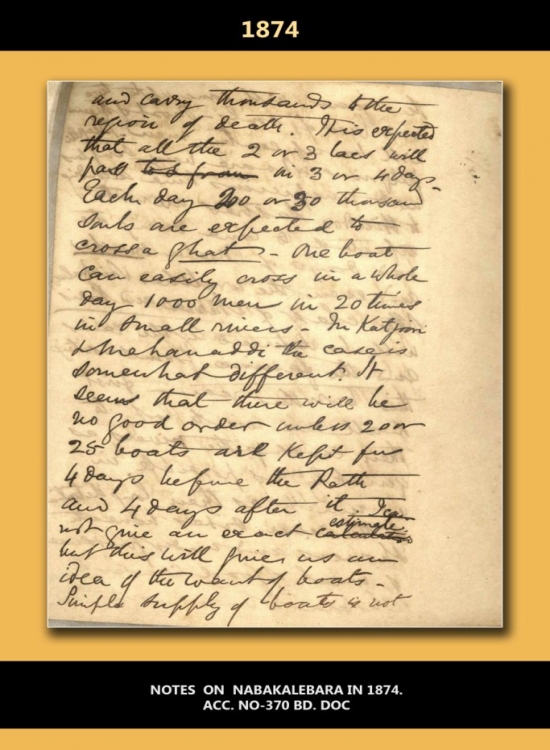 1874
and carry thousands to the
region of death. It is expected
that all the 2 or 3 lacs will
pass to & from in 3 or 4 days.
Each day 20 or 30 thousand
souls are expected to
cross a ghat - One boat
can easily cross in a whole
day 1000 men in 20 times
in small rivers - In Katjoori
& Mahanaddi the case is
somewhat different. It
seems that there will be
no good order unless 20 or
25 boats are kept for
4 days before the Rath
and 4 days after it I can
estimate
not give an exact calculation
but this will give us an
idea of the want of boats -
Simple supply of boats is not
NOTES ON NABAKALEBARA IN 1874.
ACC. NO-370 BD. DOC